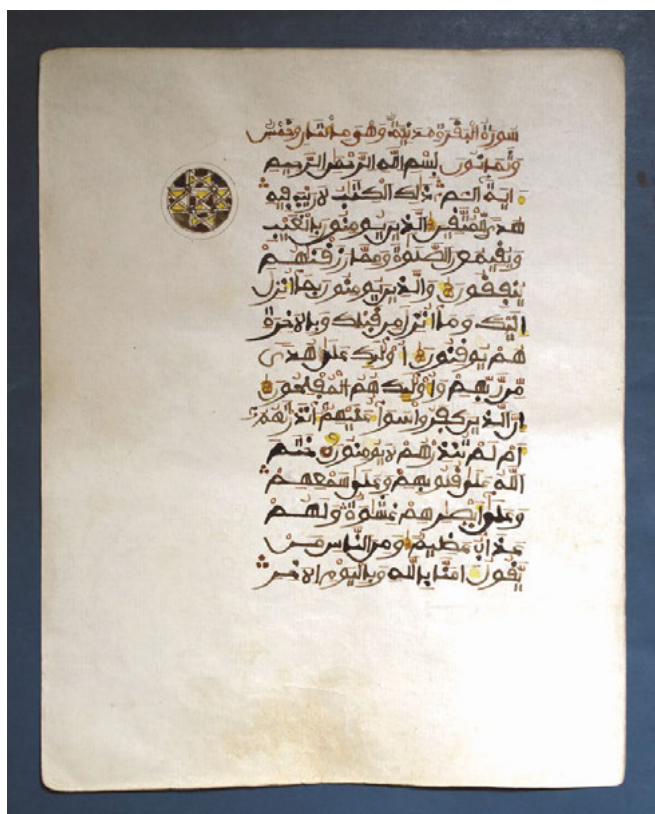 سُورَةُ الْبَقَرَةِ مَدَنِيَّةٌ وَهُوَ مِائَتَانِ وَخَمْسٌ
وَثَمَانُونَ بِسْمِ اللَّهِ الرَّحْمَٰنِ الرَّحِيمِ
اٰيَةً الٓمٓ ذَٰلِكَ الْكِتَٰبُ لَا رَيْبَ فِيهِ
هُدًى لِّلْمُتَّقِينَ الَّذِينَ يُومِنُونَ بِالْغَيْبِ
وَيُقِيمُونَ الصَّلَوٰةَ وَمِمَّا رَزَقْنَٰهُمْ
يُنفِقُونَ وَالَّذِينَ يُومِنُونَ بِمَا أُنزِلَ
إِلَيْكَ وَمَا أُنزِلَ مِن قَبْلِكَ وَبِالَاخِرَةِ
هُمْ يُوقِنُونَ أُوْلَٰئِكَ عَلَىٰ هُدًى
مِّن رَّبِّهِمْ وَأُوْلَٰئِكَ هُمُ الْمُفْلِحُونَ
إِنَّ الَّذِينَ كَفَرُوا سَوَآءٌ عَلَيْهِمْ ءَانذَرْتَهُمْ
أَمْ لَمْ تُنذِرْهُمْ لَا يُومِنُونَ خَتَمَ
اللَّهُ عَلَىٰ قُلُوبِهِمْ وَعَلَىٰ سَمْعِهِمْ
وَعَلَىٰ أَبْصَٰرِهِمْ غِشَٰوَةٌ وَلَهُمْ
عَذَابٌ عَظِيمٌ وَمِنَ النَّاسِ مَن
يَّقُولُ ءَامَنَّا بِاللَّهِ وَبِالْيَوْمِ الَاخِرِ